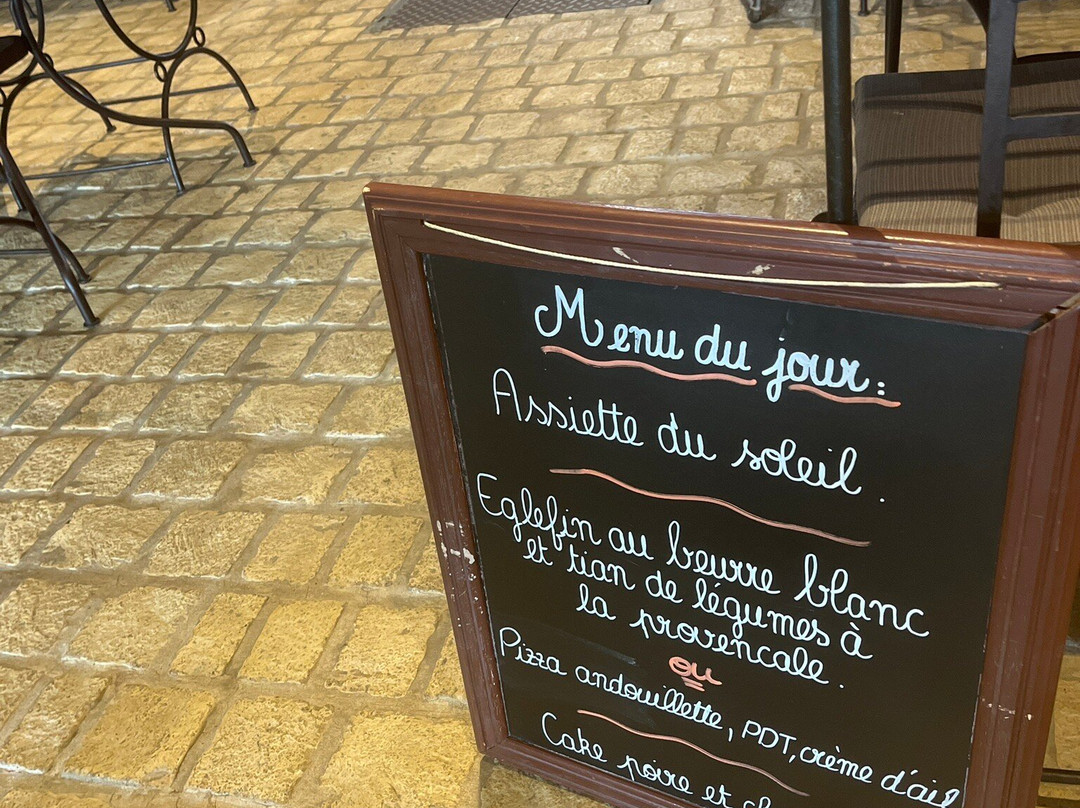 Menu du jour :
Assiette du soleil .
Eglefin au beurre blanc
et tian de légumes à
la provencale .
ou
Pizza andouillette, PDT, crème d'ail
Cake poire et